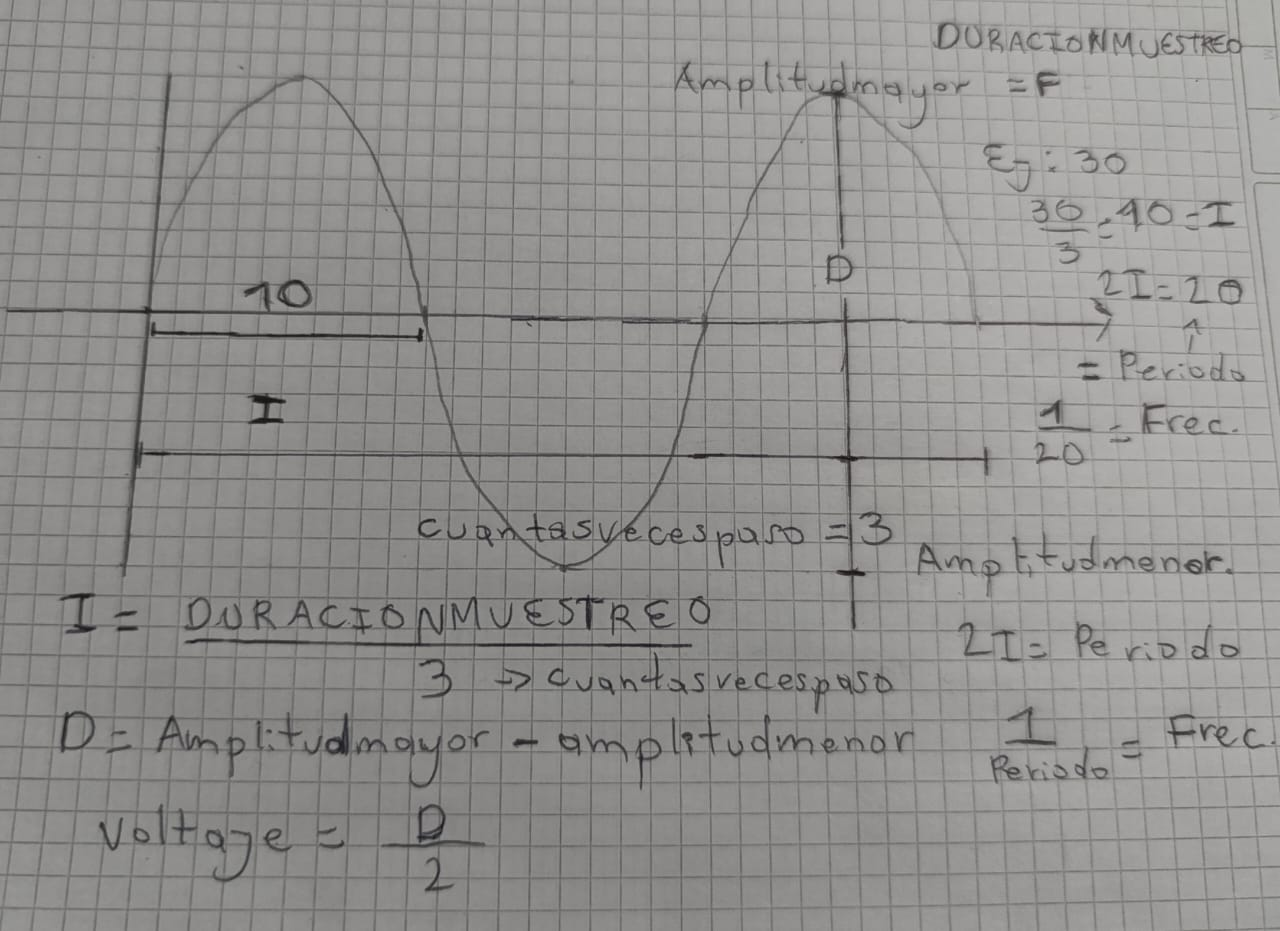 DURACIONMUESTREO
Amplitudmayor = F
Ej: 30
30/3 = 10 = I
2I = 20
10
D
↑
= Periodo
I
1/20 = Frec.
cuantasvecespaso = 3
Amplitudmenor.
I = DURACIONMUESTREO
3 -> cuantasvecespaso
2I = Periodo
D = Amplitudmayor - amplitudmenor
1/Periodo = Frec.
voltage = D/2